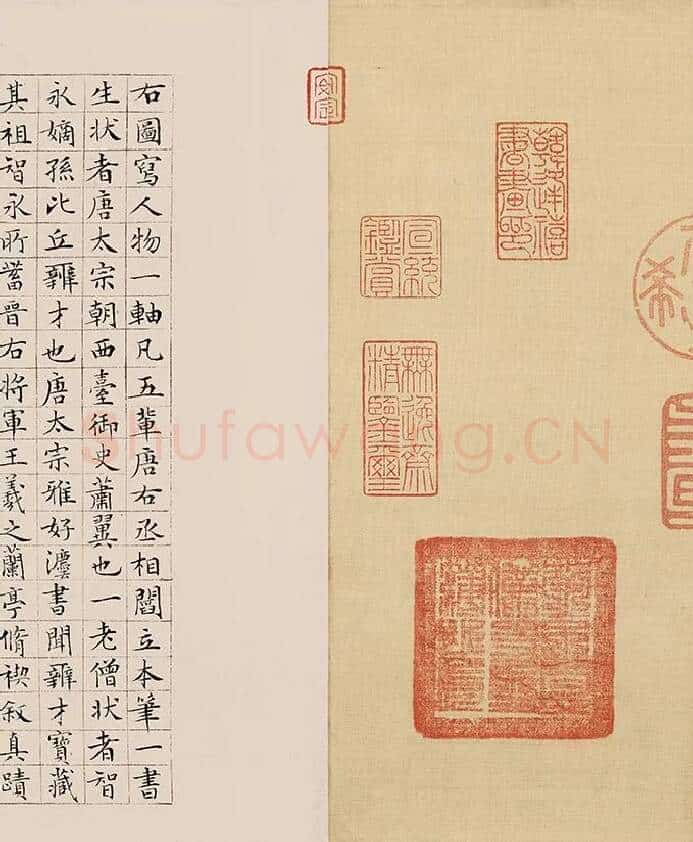 韓逢禧
書畫印
宣統
鑑賞
無逸齋
精鑒璽
右圖寫人物一軸凡五輩唐右丞相閻立本筆一書
生狀者唐太宗朝西臺御史蕭翼也一老僧狀者智
永嫡孫比丘辯才也唐太宗雅好灋書聞辯才寶藏
其祖智永所蓄晉右將軍王羲之蘭亭脩禊敘真蹟
Shufawang.CN